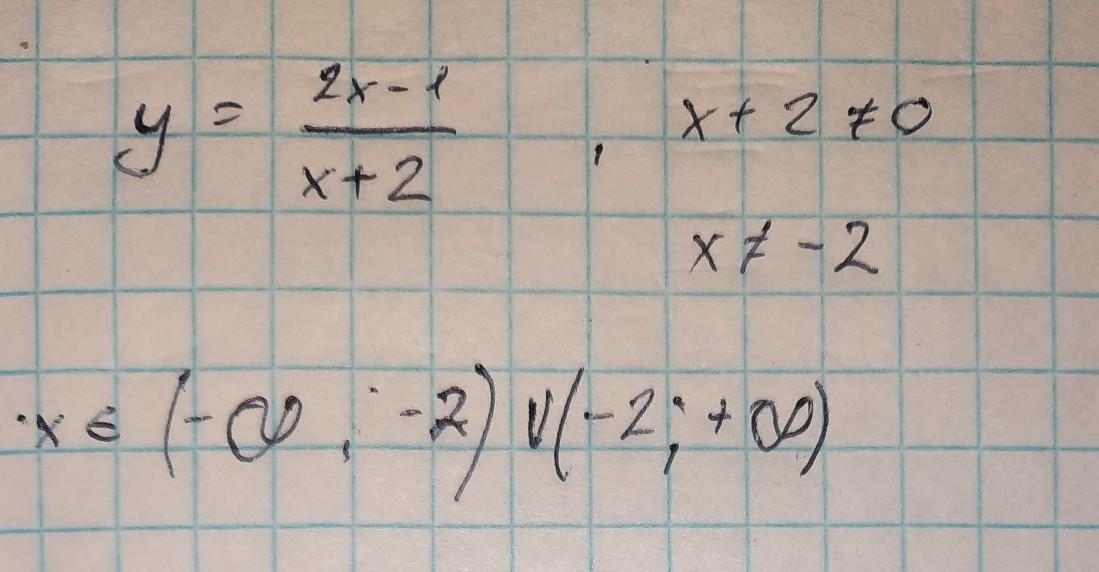 y = (2x-1)/(x+2) , x+2≠0
x≠-2
x∈(-∞;-2)∪(-2;+∞)